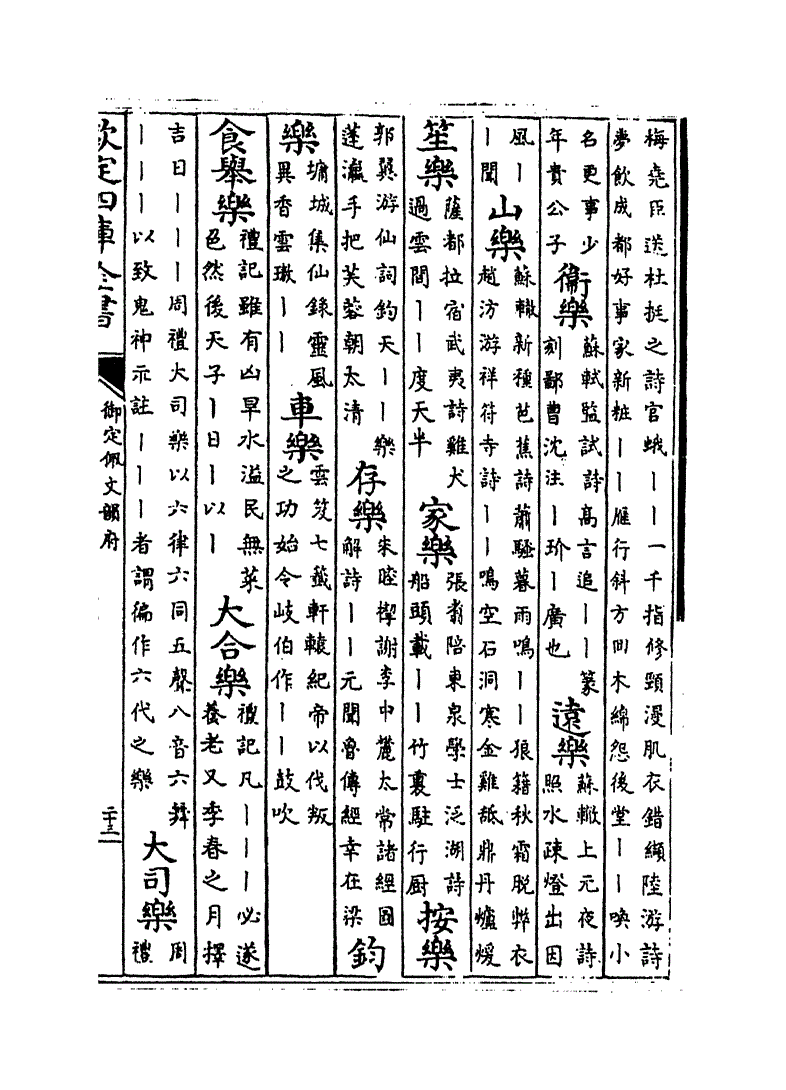 梅堯臣送杜挺之詩官蛾丨丨一千指修頸漫肌衣錯纈陸游詩
夢飲成都好事家新粧丨丨雁行斜方回木綿怨後堂丨丨喚小
名更事少年貴公子
衞樂
蘇軾監試詩高言追丨丨篆
刻鄙曹沈注丨玠丨廣也
遠樂
蘇轍上元夜詩
照水疎燈出因
風丨丨聞
山樂
蘇轍新種芭蕉詩蕭騷暮雨鳴丨丨狼籍秋霜脫弊衣
趙汸游祥符寺詩丨丨鳴空石洞寒金雞舐鼎丹爐煖
笙樂
薩都拉宿武夷詩雞犬
過雲間丨丨度天半
家樂
張翥陪東泉學士泛湖詩
船頭載丨丨竹裏駐行厨
按樂
郭翼游仙詞鈞天丨丨樂
蓬瀛手把芙蓉朝太清
存樂
朱睦㮮謝李中麓太常諸經圖
解詩丨丨元聞魯傳經幸在梁
鈞樂
墉城集仙錄靈風
異香雲璈丨丨
車樂
雲笈七籤軒轅紀帝以伐叛
之功始令岐伯作丨丨鼓吹
食舉樂
禮記雖有凶旱水溢民無菜
色然後天子丨日丨以丨
大合樂
禮記凡丨丨丨必遂
養老又季春之月擇
吉日丨丨丨周禮大司樂以六律六同五聲八音六舞
丨丨丨以致鬼神示註丨丨丨者謂徧作六代之樂
大司樂
周
禮
欽定四庫全書
御定佩文韻府
二十三